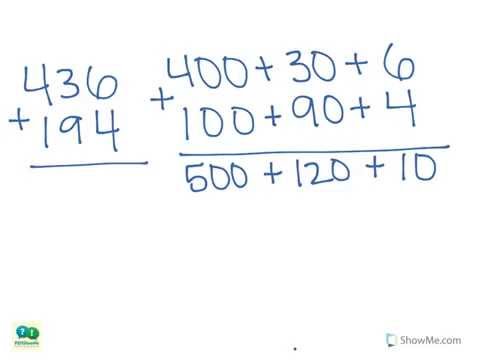 436
+194
400+30+6
+
100+90+4
500+120+10
ShowMe.com